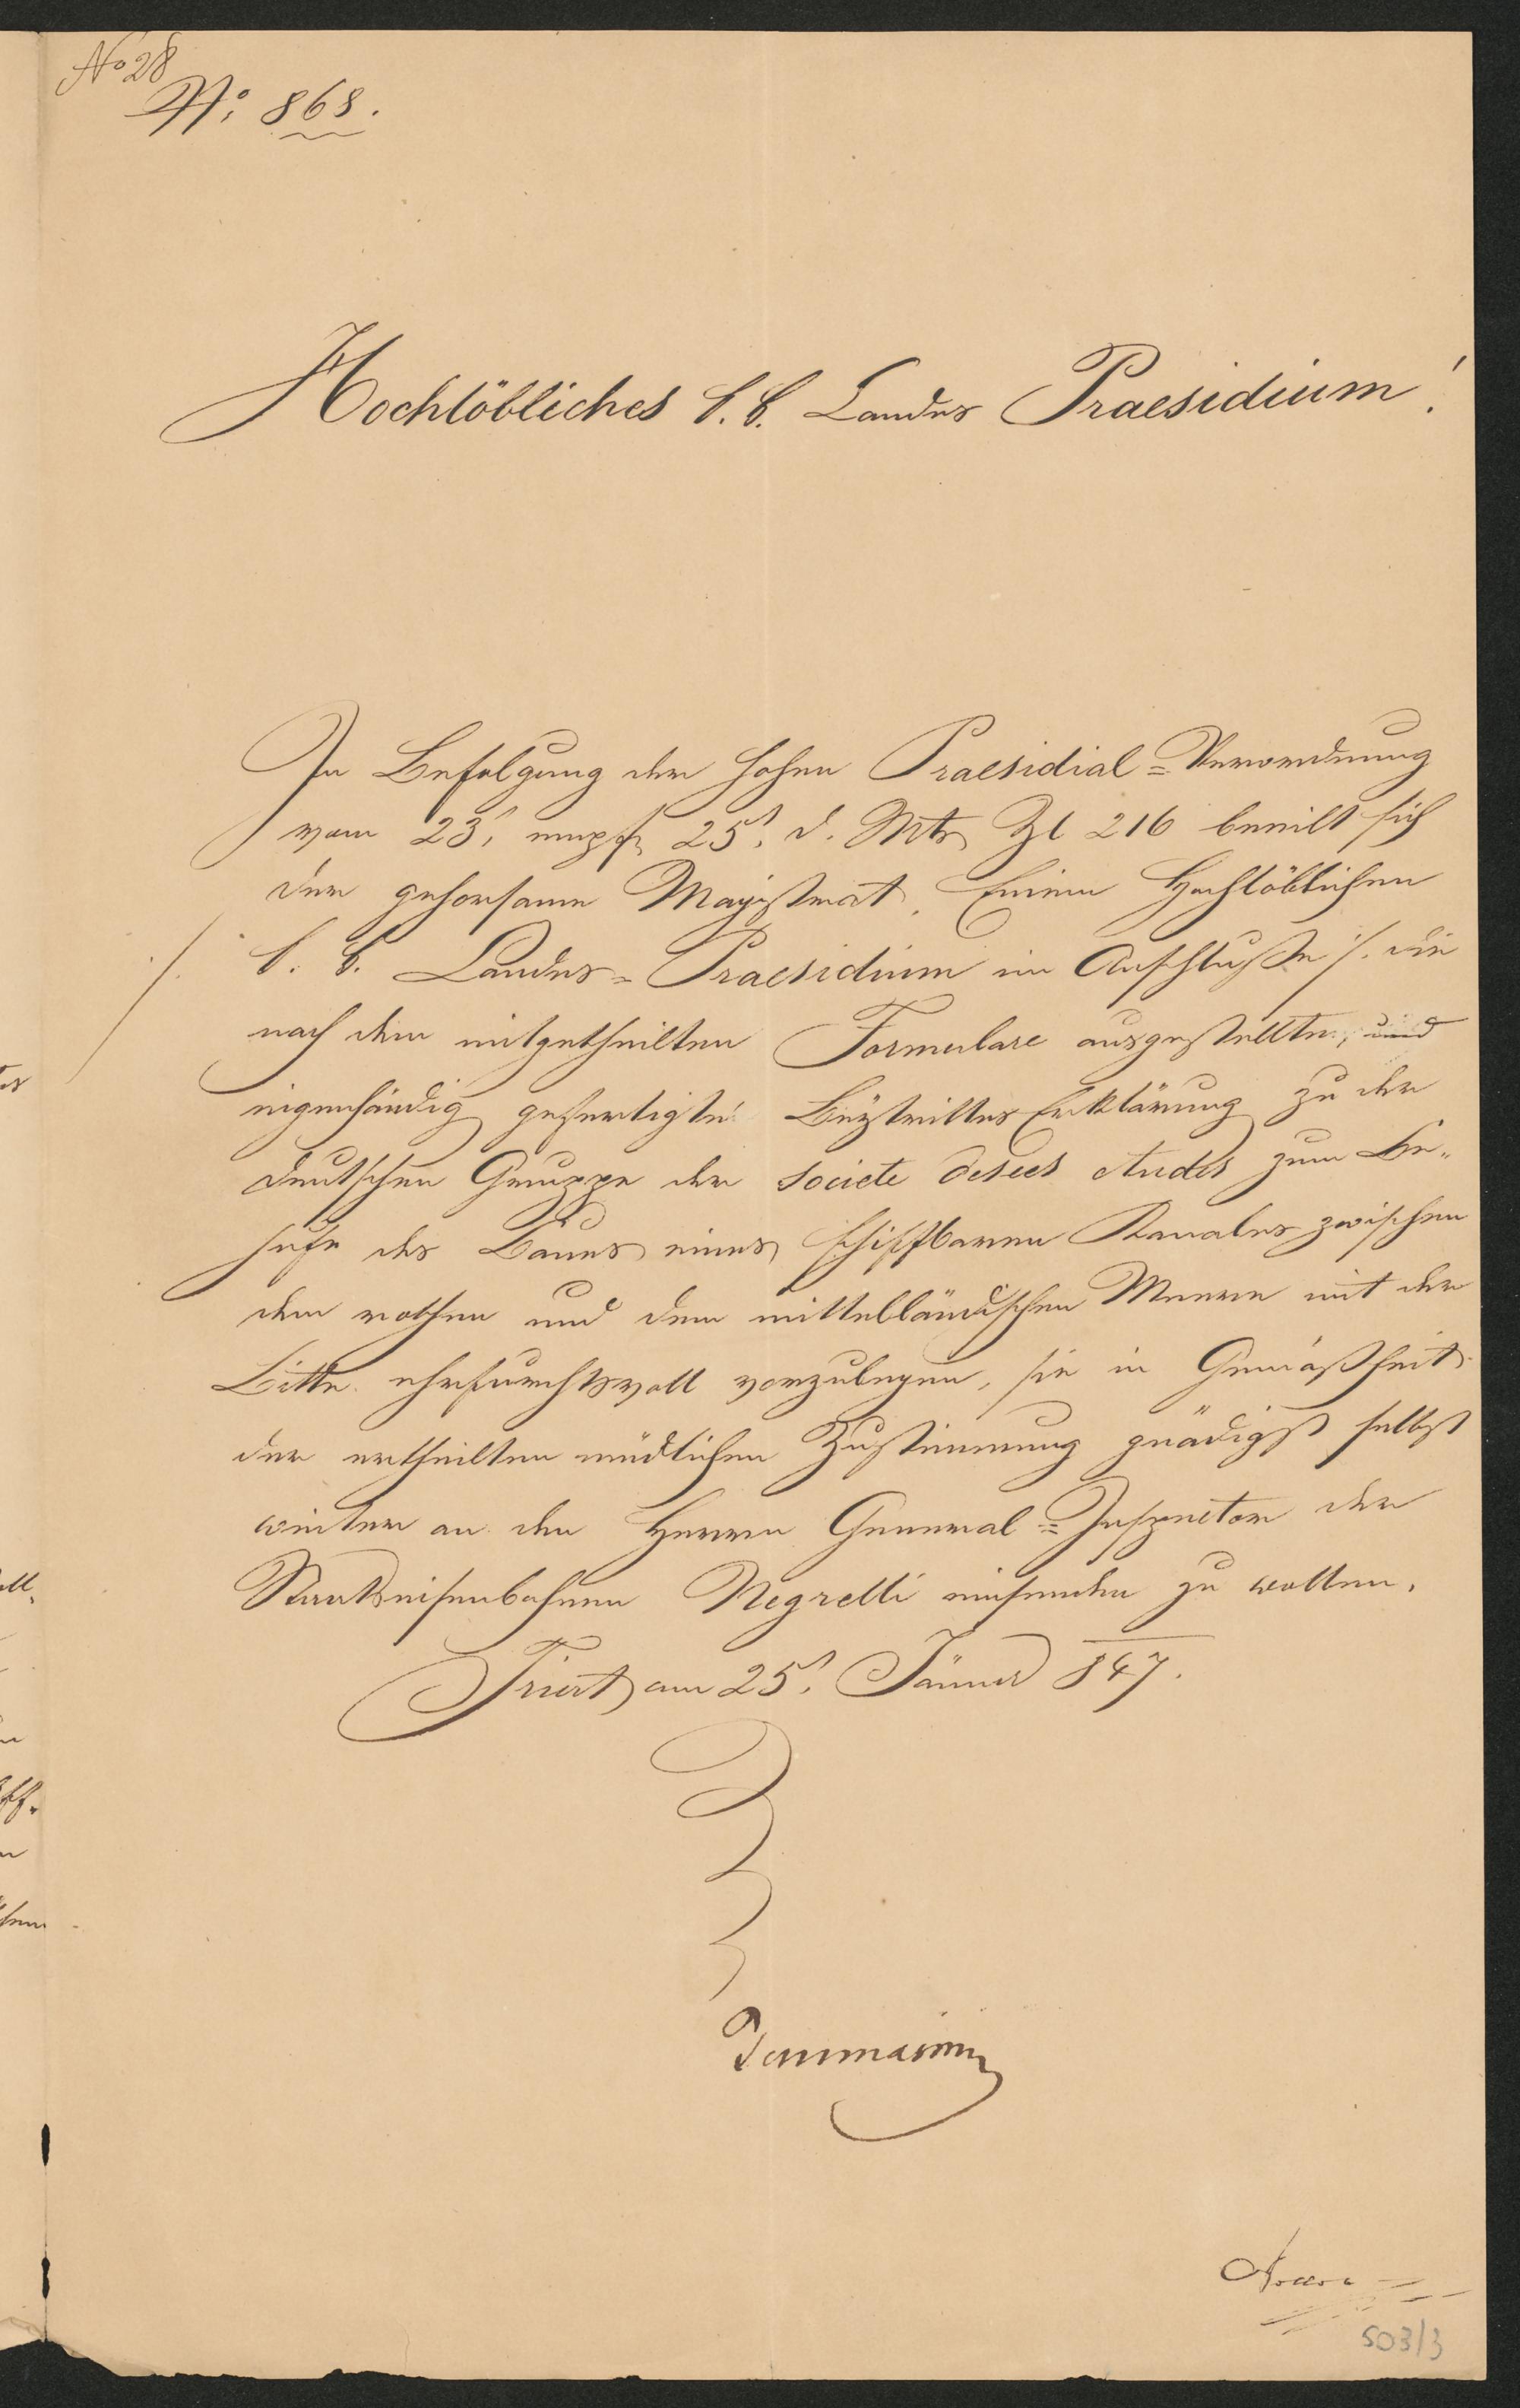 No 28
No: 868.
Hochlöbliches k. k. Landes Praesidium!
In Befolgung der hohen Praesidial=Verordnung
vom 23t, empf. 25t. d. Mts Zl 216 beeilt sich
der gehorsame Magistrat, Einem Hochlöblichen
k. k. Landes=Praesidium im Anschluße ·/. die
nach dem mitgetheilten Formulare ausgestellte, und
eigenhändig gefertigte Beÿtrittes Erklärung zu der
deutschen Gruppe der societe desees etudes zum Be„
hufe des Baues eines schiffbaren Kanales zwischen
dem rothen und dem mittelländischen Meere mit der
Bitte ehrfurchtsvoll vorzulegen, sie in Gemäßheit
der ertheilten müdlichen Zustimmung gnädigst selbst
weiter an den Herrn General=Inspector der
Staatseisenbahnen Negrelli einsenden zu wollen.
Triest am 25t. Jänner 847.
Tommasini
503/3